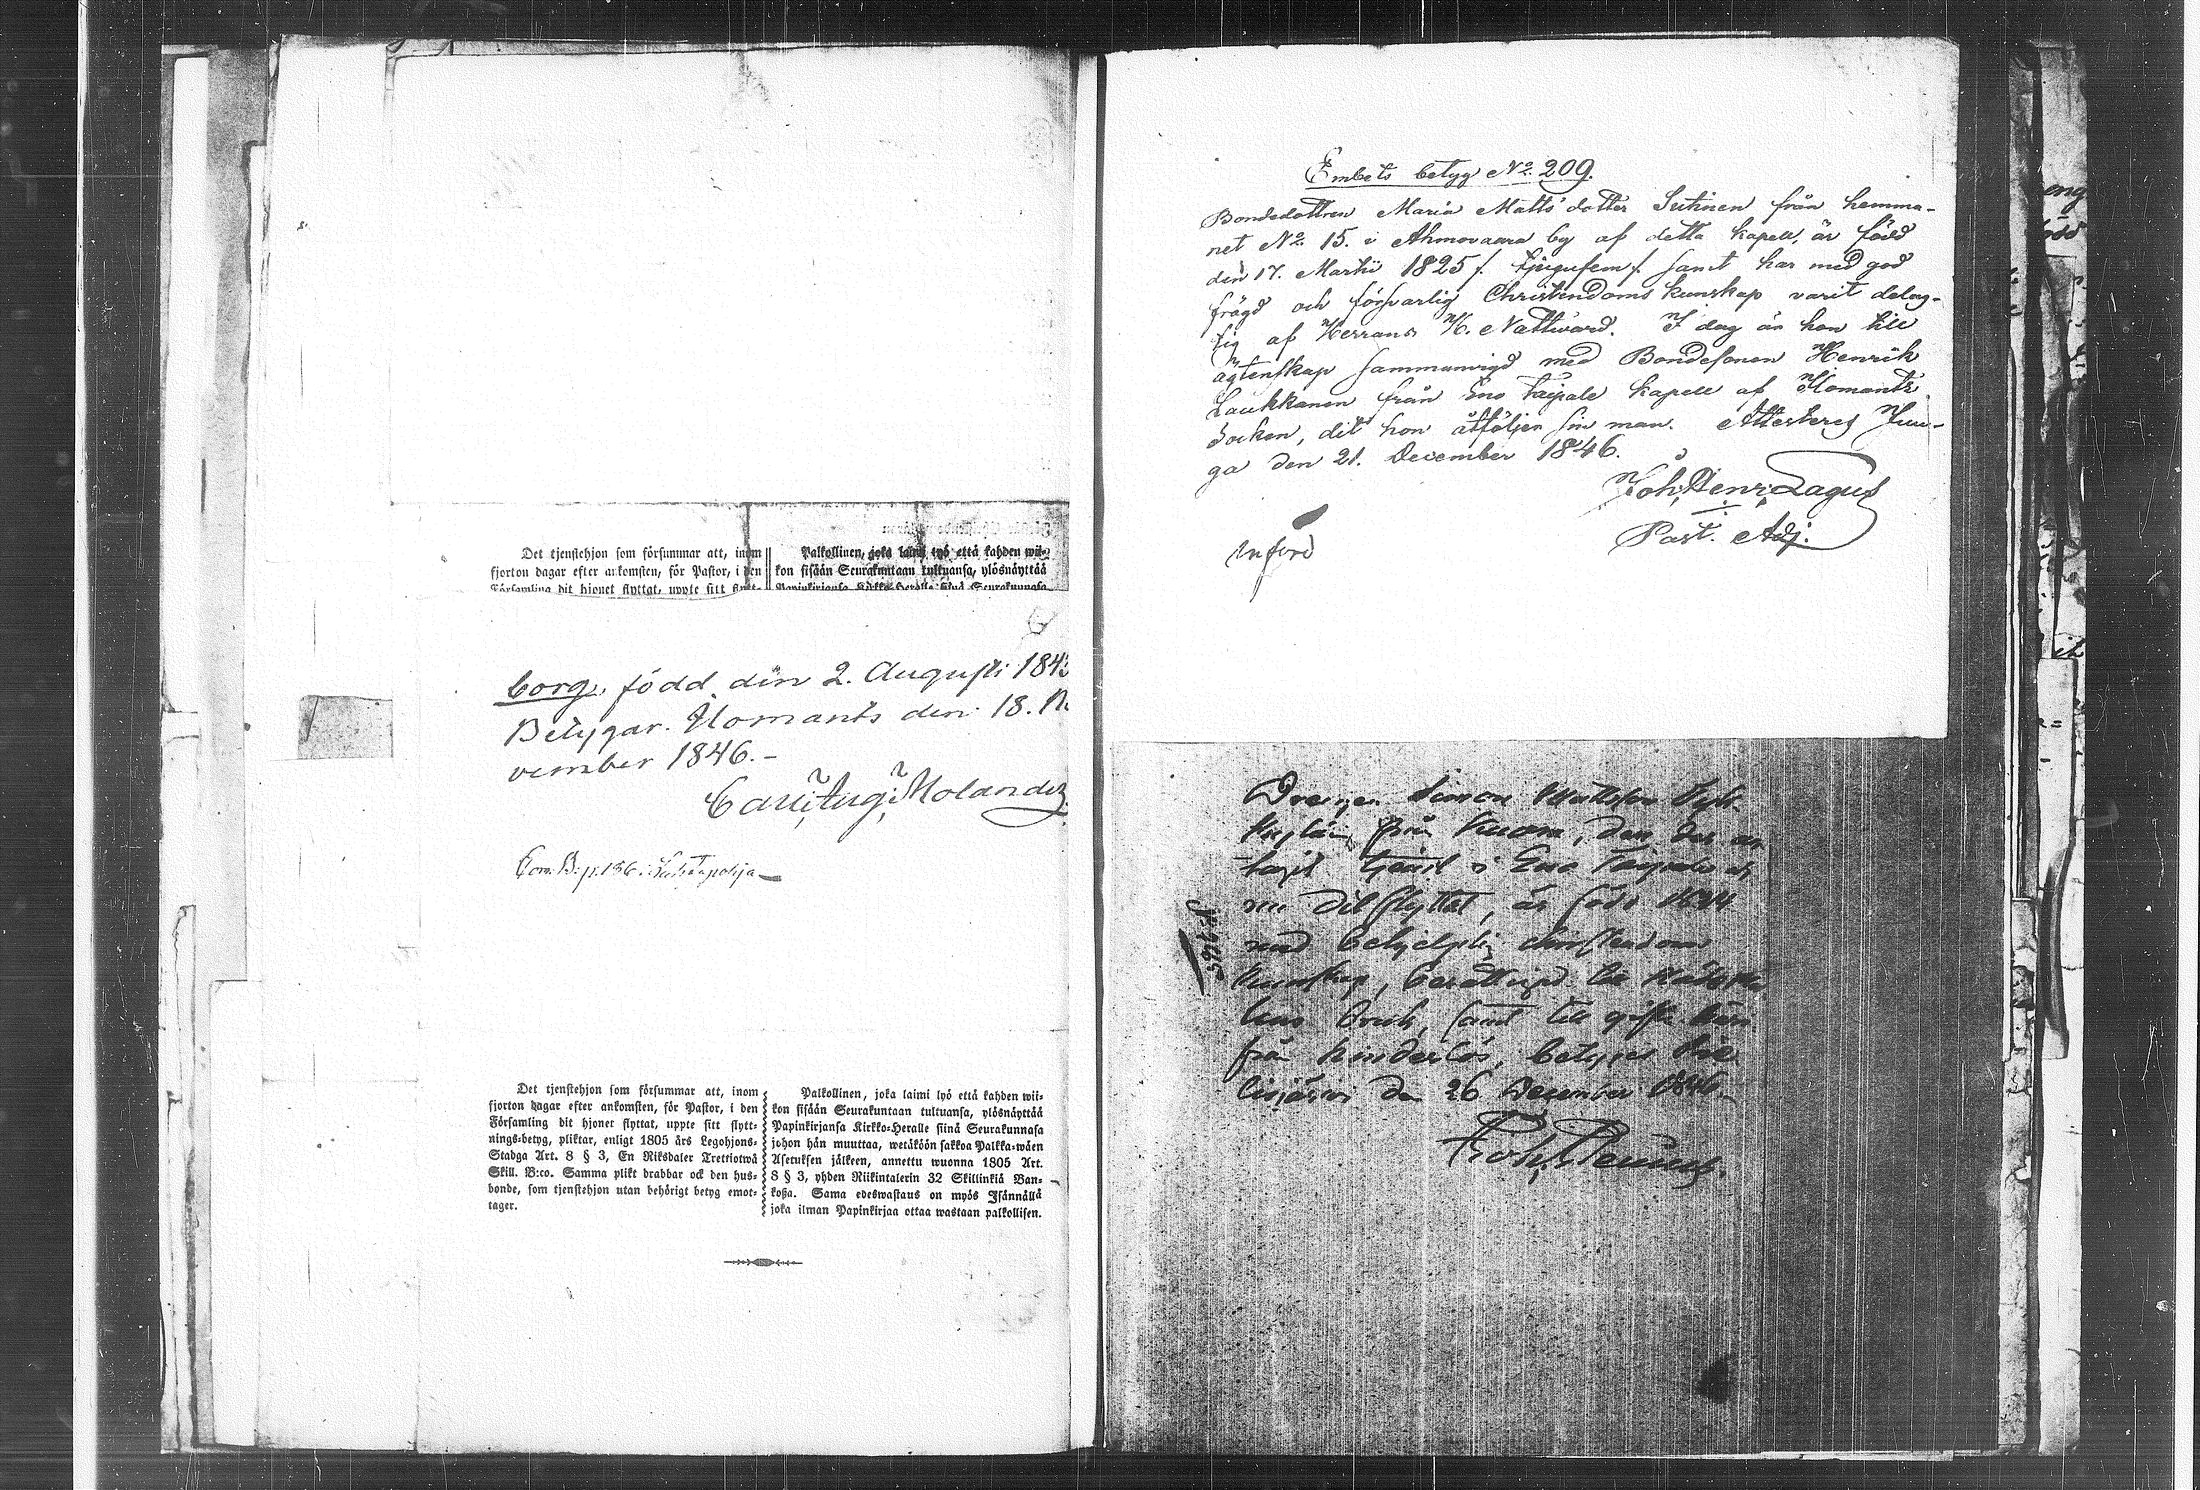 Det tjenstehjon som försummar att, inom
fjorton dagar efter ankomsten, för Pastor, i den
Församling dit hjonet flyttat, uppte sitt flytt-
Palkollinen, joka laimi lyö että kahden wii-
kon sisään Seurakuntaan tultuansa, ylösnäyttää
Papinkirjansa Kirkko-Heralle siinä Seurakunnasa
borg, född den 2. Augusti 184
Betygar. Ilomants den 18. No
vember 1846.-
Molander
Det tjenstehjon som försummar att, inom
fjorton dagar efter ankomsten, för Pastor, i den
Församling dit hjonet flyttat, uppte sitt flytt-
nings-betyg, pliktar, enligt 1805 års Legohjons-
Stadga Art. 8 § 3, En Riksdaler Trettiotwå
Skill. B:co. Samma plikt drabbar ock den hus-
bonde, som tjenstehjon utan behörigt betyg emot-
tager.
Palkollinen, joka laimi lyö että kahden wii-
kon sisään Seurakuntaan tultuansa, ylösnäyttää
Papinkirjansa Kirkko-Heralle siinä Seurakunnasa
johon hän muuttaa, wetäköön sakkoa Palkka-wäen
Asetuksen jälkeen, annettu wuonna 1805 Art.
8 § 3, yhden Riikintalerin 32 Skillinkiä Ban-
koßa. Sama edeswastaus on myös Isännällä
joka ilman Papinkirjaa ottaa wastaan palkollisen.
Embets betyg No. 209.
Bondedottren Maria Matts dotter Sutinen från hemma-
net No. 15. i Ahmovaara by af detta kapell, är född
den 17. Martii 1825 /. tjugufem /. samt har med god
frägd och försvarlig Christendoms kunskap varit delag-
tig af Herrans H. Nattvard. I dag är hon till
ägtenskap sammanvigd med Bondesonen Henrik
Laukkanen från Eno Taipale kapell af Ilomants
Socken, dit hon åtföljer sin man. Attesteras Juu-
ga den 21. December 1846.
Joh. Henr. Lagus
Past. Adj.
Införd
Drengen Simon Mattsson
från
tagit tjenst i Eno Taipale och
nu dit flyttat, är född
med behjelplig christendoms
kunskap, berättigad till
samt till gifte
från hinderlös, betygas
den 26 December 1846.